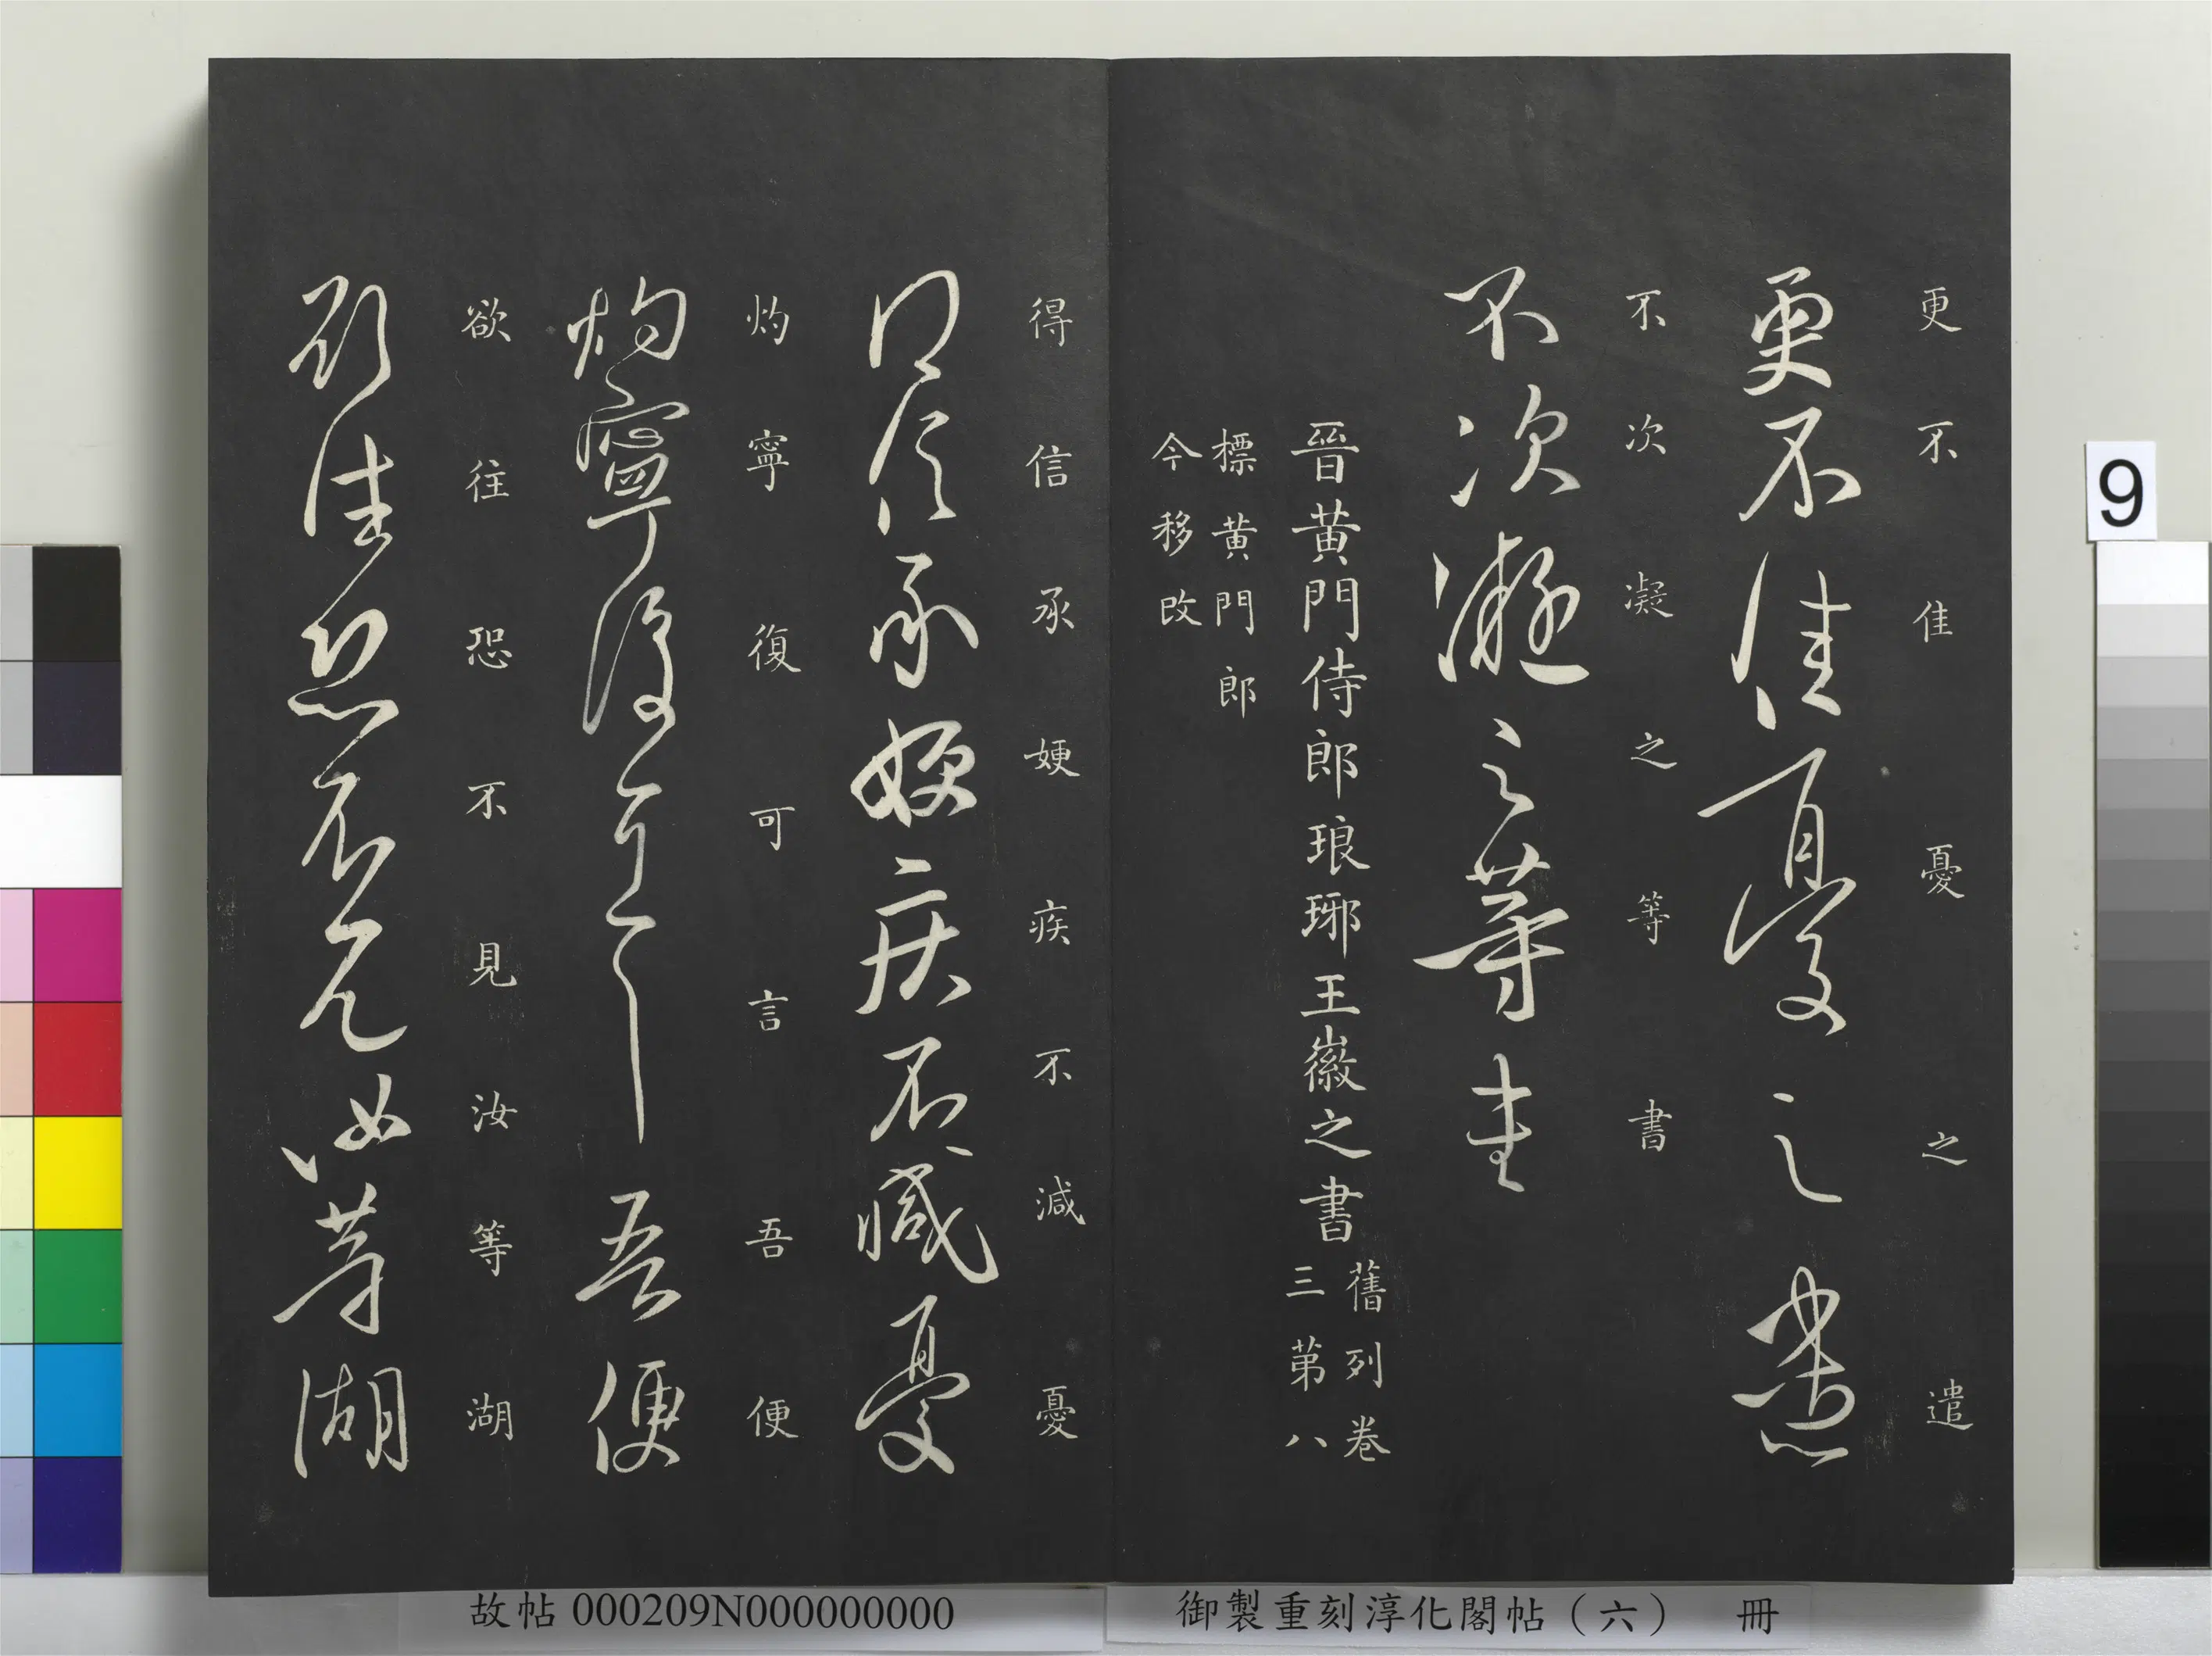 更不佳憂之遣
更不佳憂之遣
不次凝之等書
不次凝之等書
晉黃門侍郎琅琊王徽之書
舊列卷
三第八
標黃門郎
今移改
得信承㛐疾不減憂
得信承㛐疾不減憂
灼寧復可言吾便
灼寧復可言吾便
欲往恐不見汝等湖
欲往恐不見汝等湖
9
御製重刻淳化閣帖（六） 冊
故帖 000209N000000000